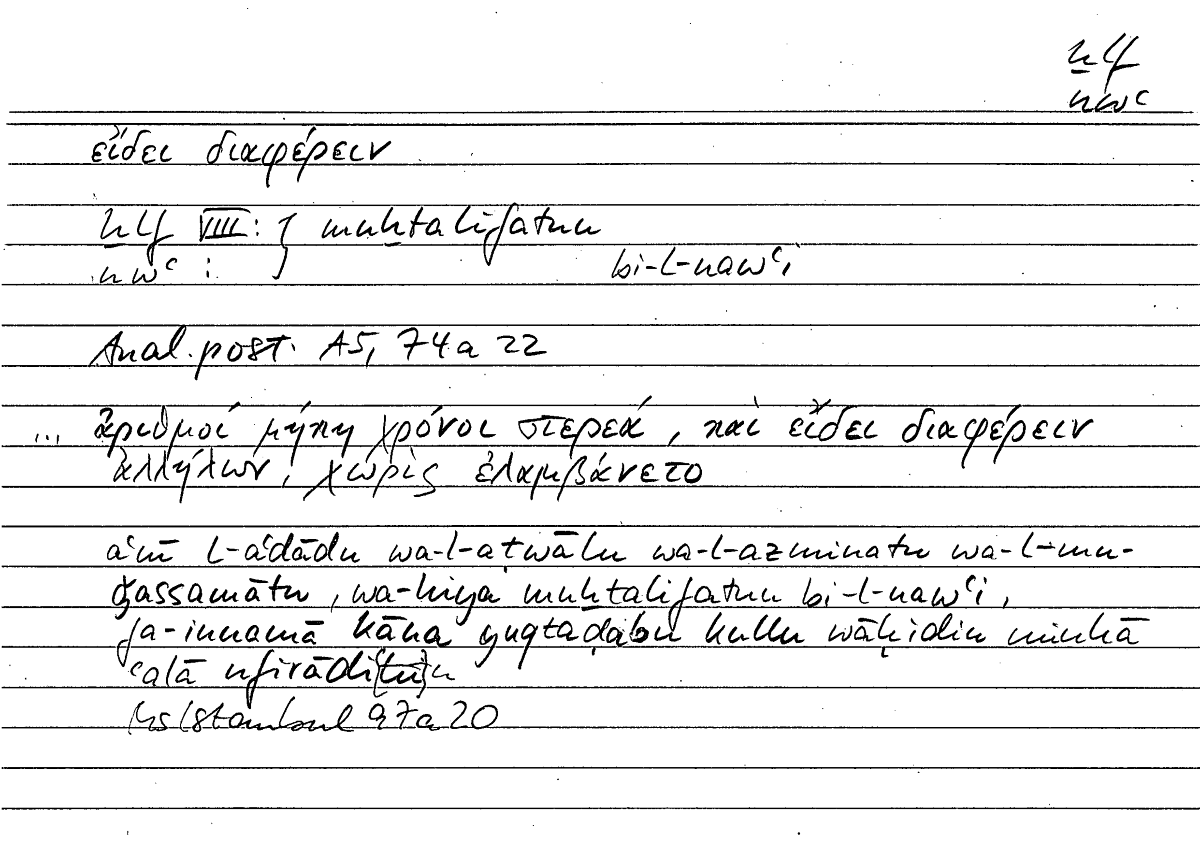 ḫlf
nwʿ
εἴδει διαφέρειν
ḫlf VIII : } muḫtalifatun
nwʿ : bi-l-nawʿi
Anal. post. A5, 74a 22
... ἀριθμοί μήκη χρόνοι στερεά, καὶ εἴδει διαφέρειν
ἀλλήλων, χωρὶς ἐλαμβάνετο
aʿnī l-aʿdādu wa-l-aṭwālu wa-l-azminatu wa-l-mu-
ǧassamātu, wa-hiya muḫtalifatun bi-l-nawʿi,
fa-innamā kāna yuqtaḍabu kullu wāḥidin minhā
ʿalā nfirādi
Hs Istanbul 97a20